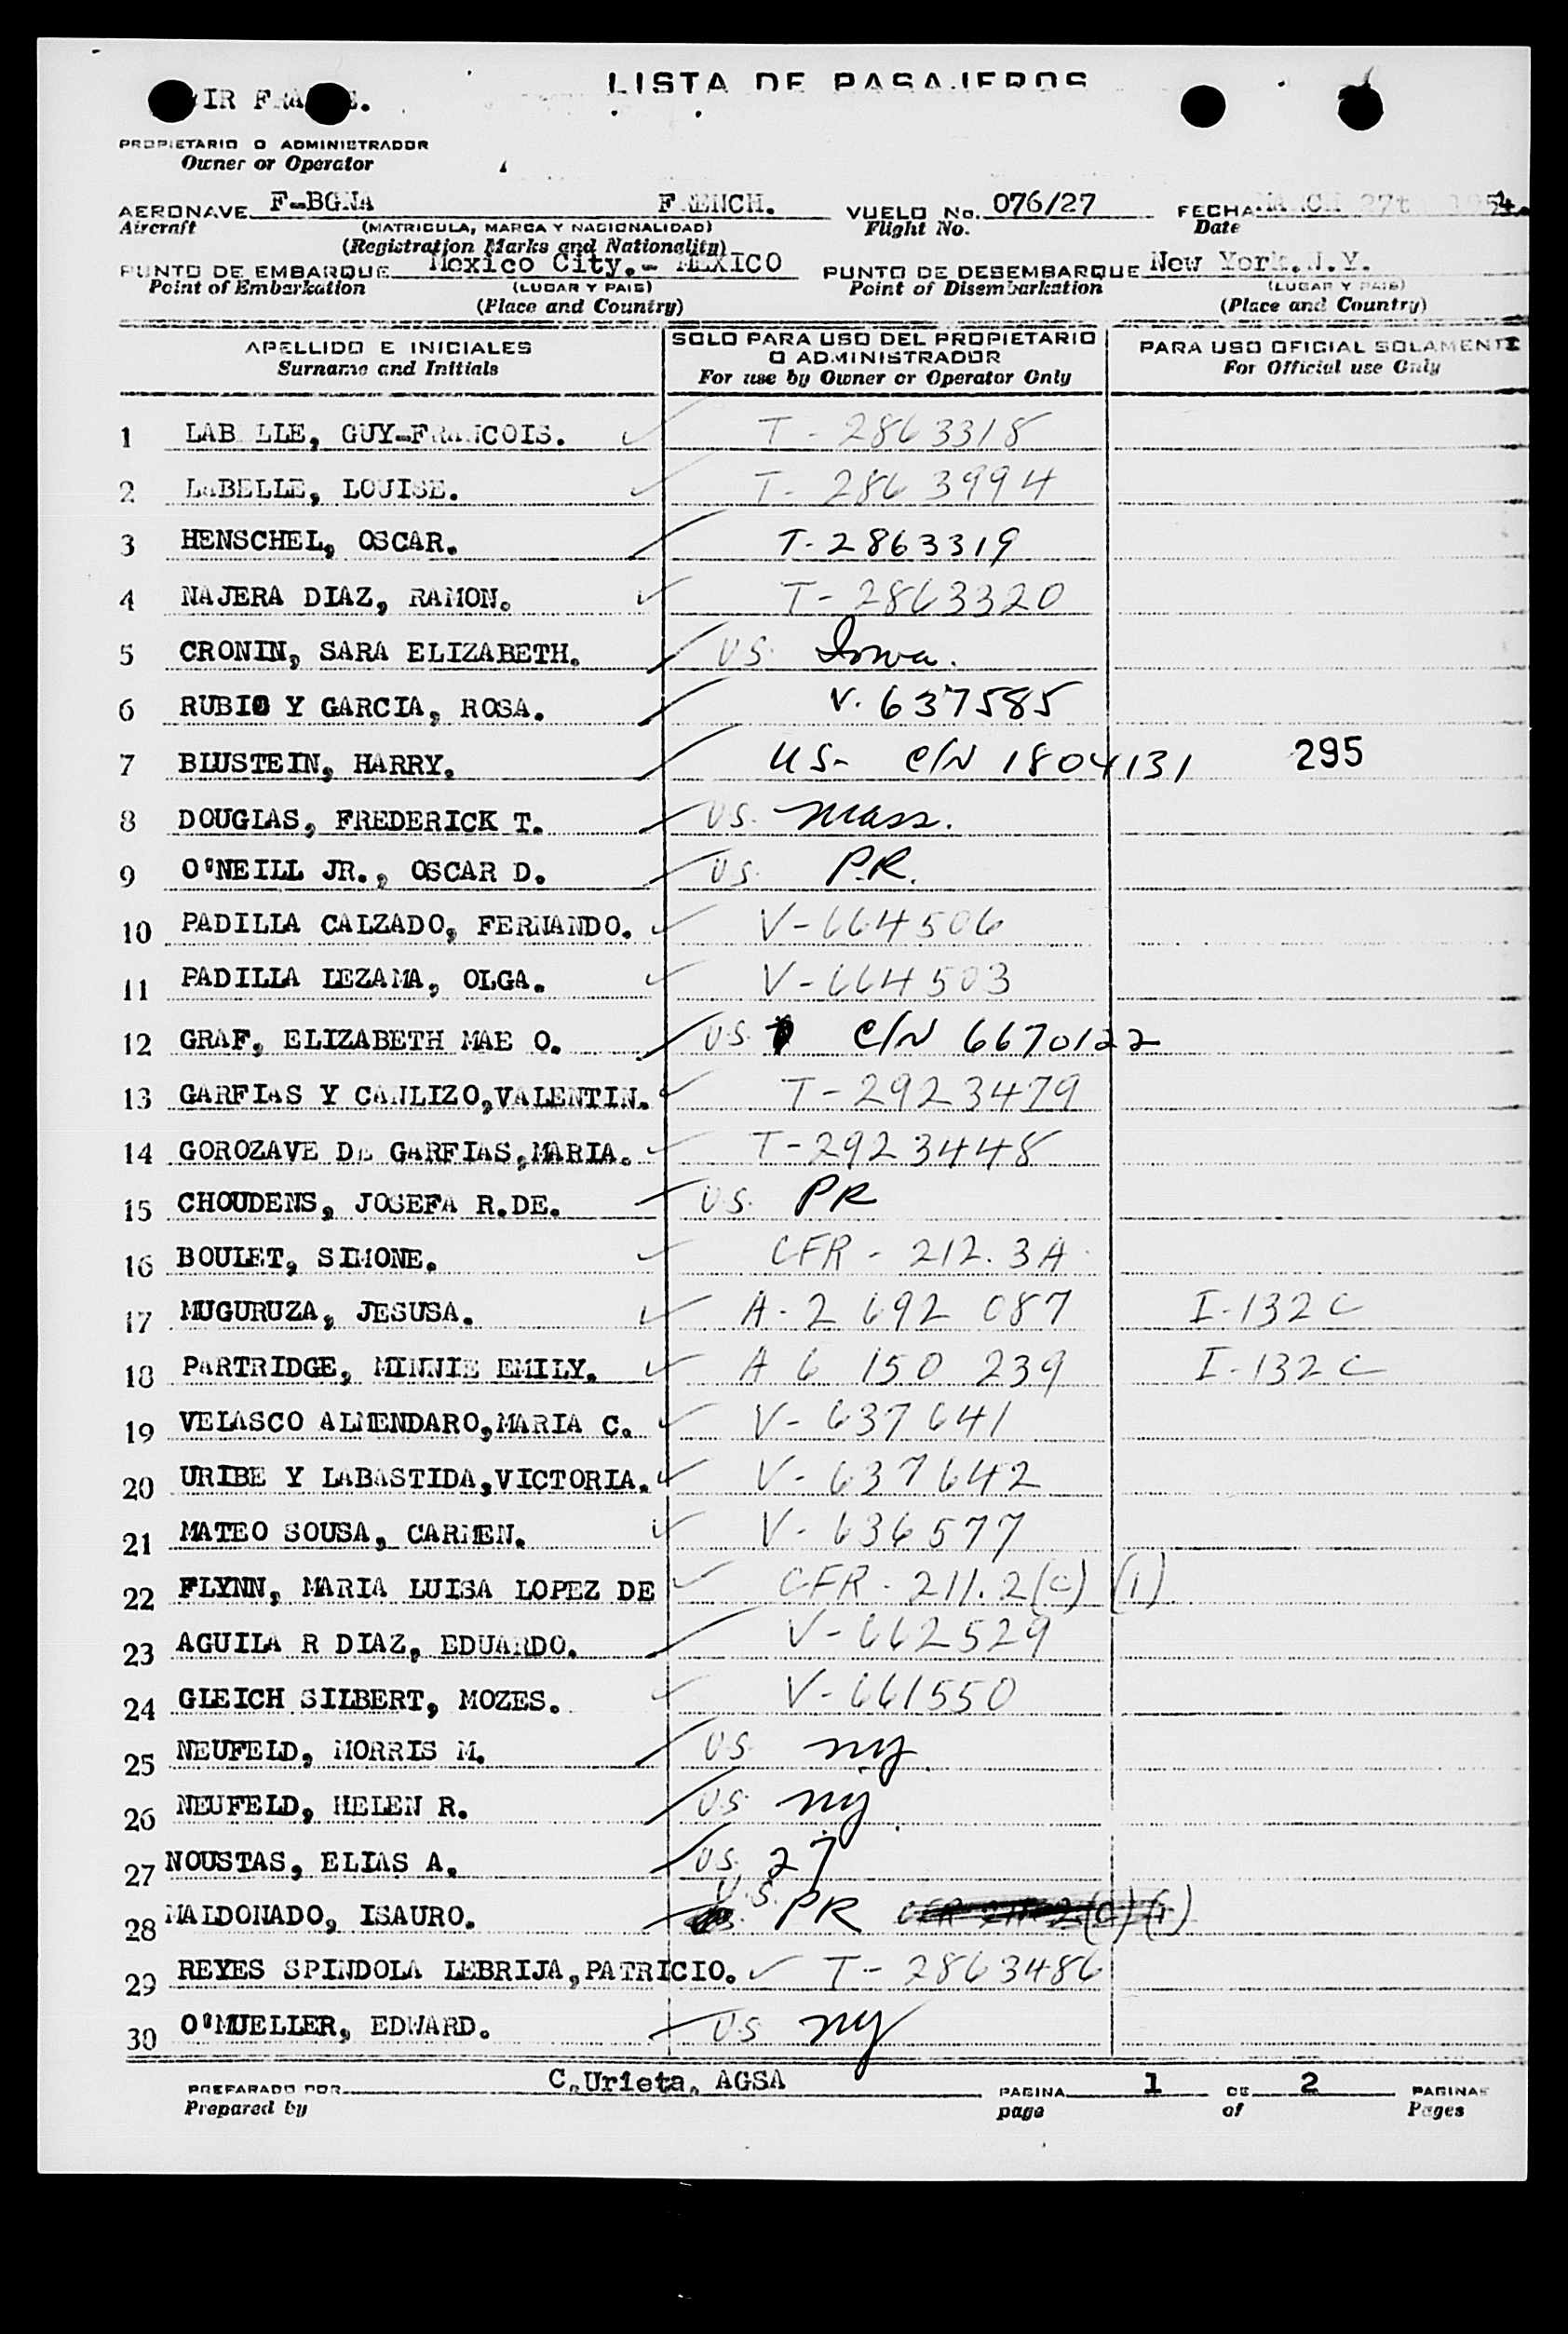 LISTA DE PASAJEROS
IR FRA E.
PROPIETARIO O ADMINISTRADOR
Owner or Operator
AERONAVE F-BGNA FRENCH. VUELO No. 076/27 FECHA MARCH 27th 1954.
Aircraft (MATRICULA, MARCA Y NACIONALIDAD) Flight No. Date
(Registration Marks and Nationality)
PUNTO DE EMBARQUE Mexico City.- MEXICO PUNTO DE DESEMBARQUE New York. N.Y.
Point of Embarkation (LUGAR Y PAIS) Point of Disembarkation (LUGAR Y PAIS)
(Place and Country) (Place and Country)
APELLIDO E INICIALES SOLO PARA USO DEL PROPIETARIO O ADMINISTRADOR PARA USO OFICIAL SOLAMENTE
Surname and Initials For use by Owner or Operator Only For Official use Only
1 LAB LLE, GUY-FRANCOIS. T-2863318
2 LaBELLE, LOUISE. T-2863994
3 HENSCHEL, OSCAR. T-2863319
4 NAJERA DIAZ, RAMON. T-2863320
5 CRONIN, SARA ELIZABETH. U.S. Iowa.
6 RUBIO Y GARCIA, ROSA. V. 637585
7 BLUSTEIN, HARRY. US- C/N 1804131 295
8 DOUGLAS, FREDERICK T. U.S. Mass.
9 O'NEILL JR., OSCAR D. U.S. P.R.
10 PADILLA CALZADO, FERNANDO. V-664506
11 PADILLA LEZAMA, OLGA. V-664503
12 GRAF, ELIZABETH MAE O. U.S. C/N 6670122
13 GARFIAS Y CANLIZO,VALENTIN. T-2923479
14 GOROZAVE DE GARFIAS,MARIA. T-2923448
15 CHOUDENS, JOSEFA R.DE. U.S. PR
16 BOULET, SIMONE. CFR - 212.3A
17 MUGURUZA, JESUSA. A-2 692 087 I-132C
18 PARTRIDGE, MINNIE EMILY. A 6 150 239 I-132C
19 VELASCO ALMENDARO,MARIA C. V-637641
20 URIBE Y LABASTIDA,VICTORIA. V-637642
21 MATEO SOUSA, CARMEN. V-636577
22 FLYNN, MARIA LUISA LOPEZ DE CFR - 211.2(c) (1)
23 AGUILA R DIAZ, EDUARDO. V-662529
24 GLEICH SILBERT, MOZES. V-661550
25 NEUFELD, MORRIS M. U.S. ny
26 NEUFELD, HELEN R. U.S. ny
27 NOUSTAS, ELIAS A. U.S.
28 MALDONADO, ISAURO. U.S. PR
29 REYES SPINDOLA LEBRIJA,PATRICIO. T-2863486
30 O'MUELLER, EDWARD. U.S. ny
PREPARADO POR C.Urieta. AGSA PAGINA 1 DE 2 PAGINAS
Prepared by page of Pages